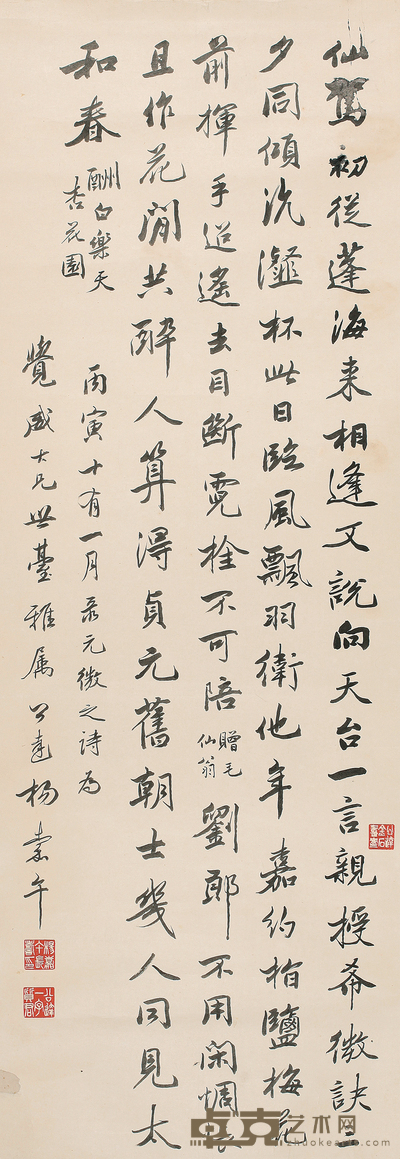 仙駕初從蓬海來相逢又說向天台一言親授希微訣三
夕同傾沆瀣杯此日臨風飄羽衛他年嘉約指鹽梅花
前揮手迢遙去目斷霓
不可陪贈毛
仙翁
劉郎不用閑惆悵
且作花間共醉人算得貞元舊朝士幾人同見太
和春酬白樂天
杏花園
丙寅十有一月录元微之詩為
覺威大兄世臺雅属公達楊
卓克艺术网
zhuokearts.com